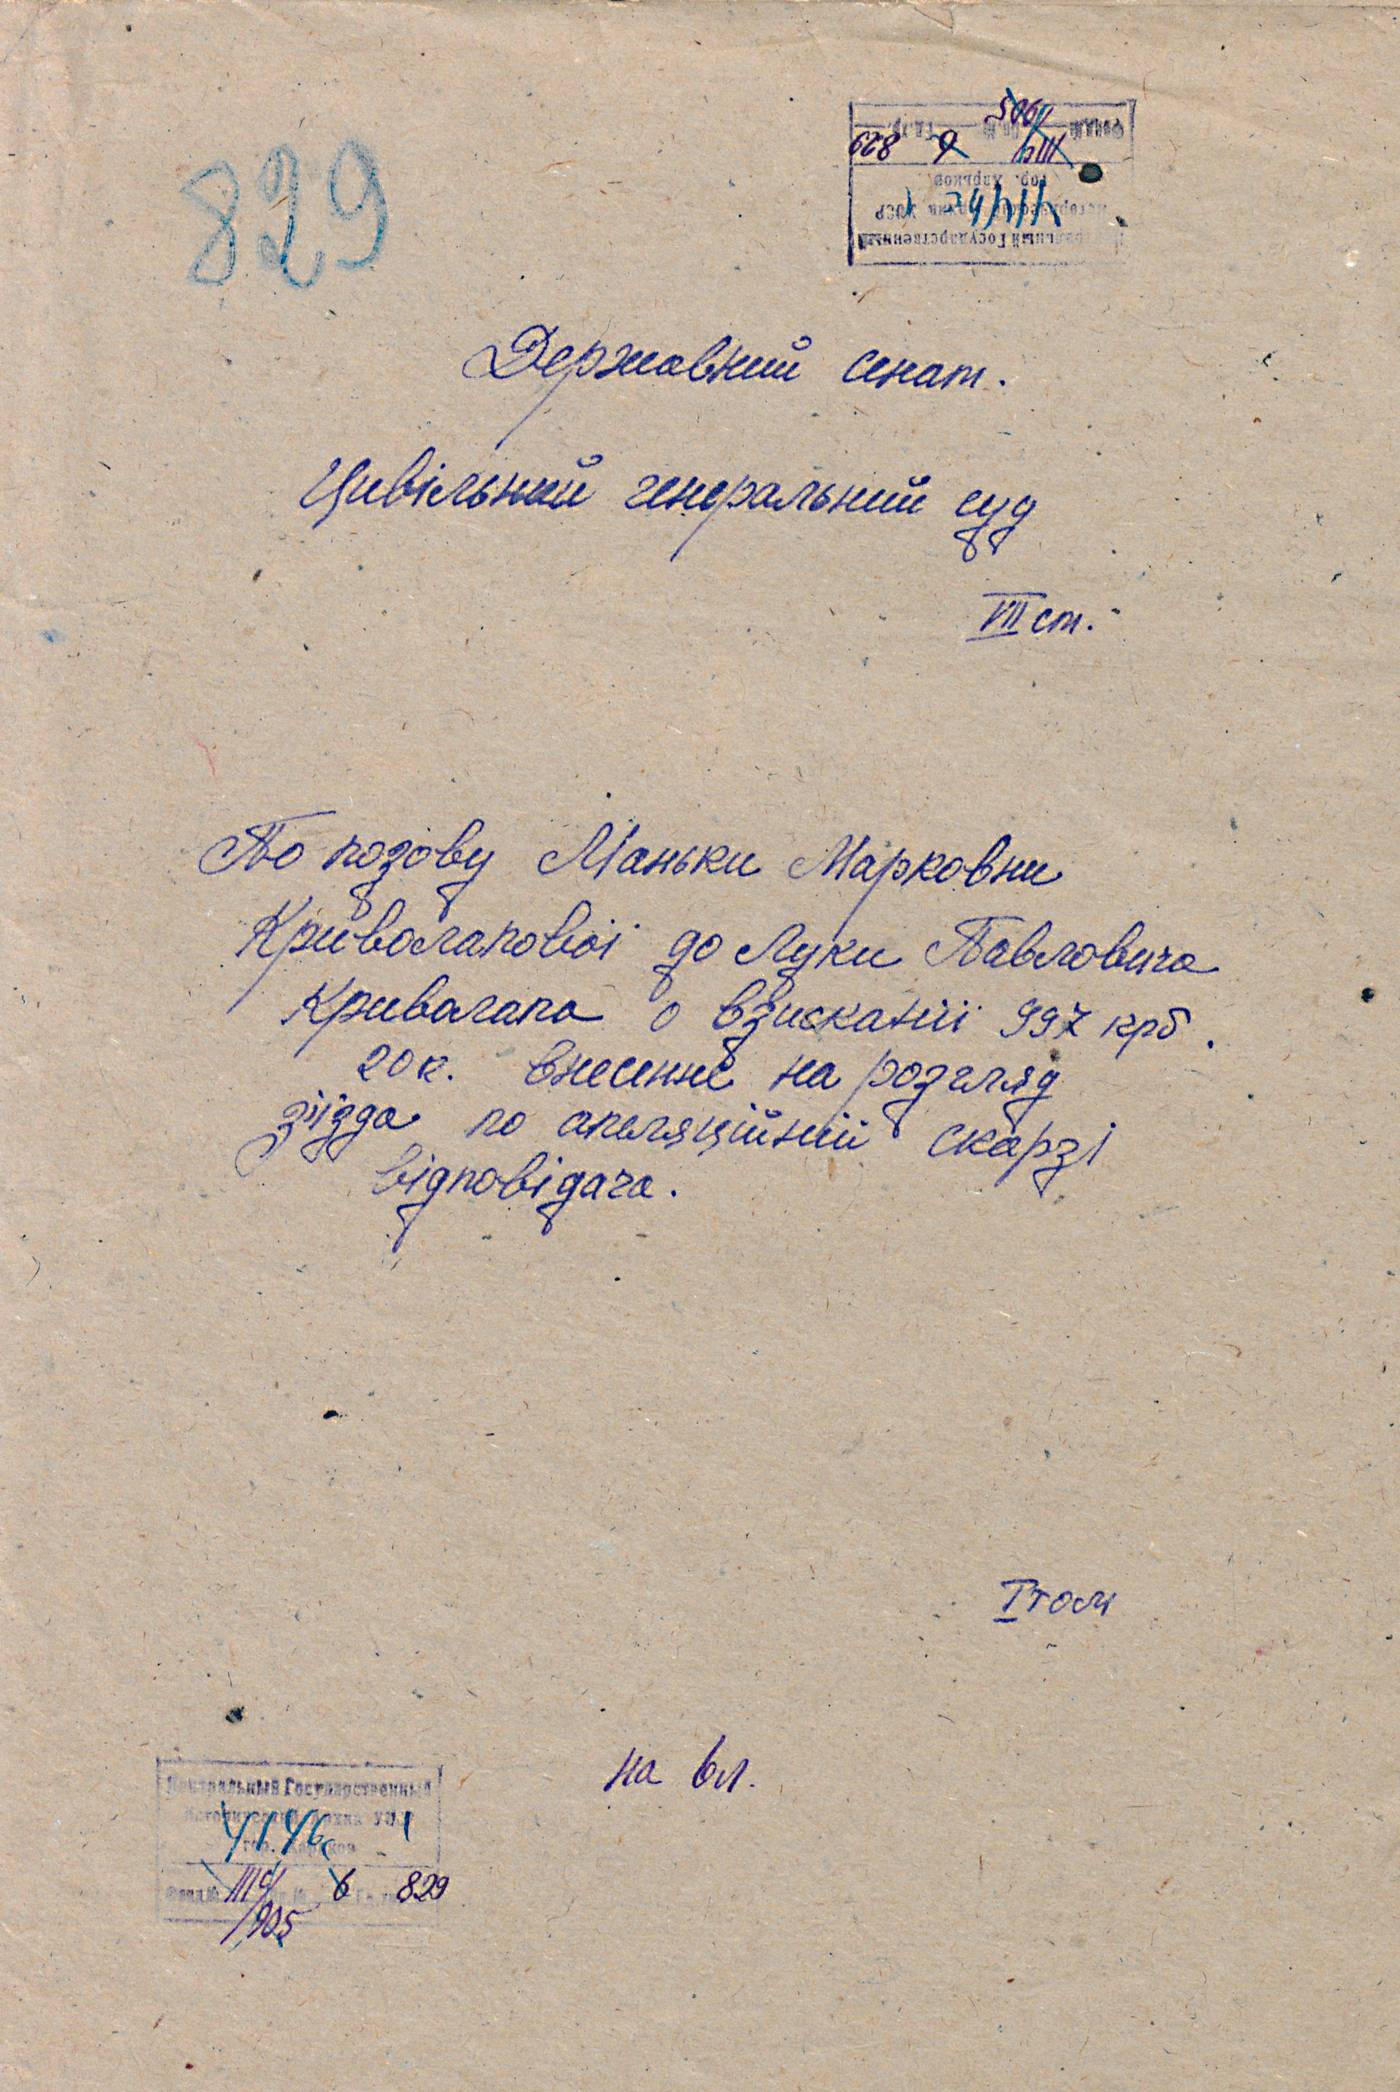 829
Центральный Государственный
Исторический Архив УССР
гор. Харьков
Фонд №
829
Державний сенат.
Цивільний генеральний суд
VII ст.
По позову Маньки Марковни
Криволапової до Луки Павловича
Криволапа о взисканії 997 крб.
20 к. внесенне на розгляд
зїізда по апеляційній скарзі
відповідача.
I том
на 6 л.
Центральный Государственный
Исторический Архив УССР
гор. Харьков
4146 1
Фонд № 6 829
905